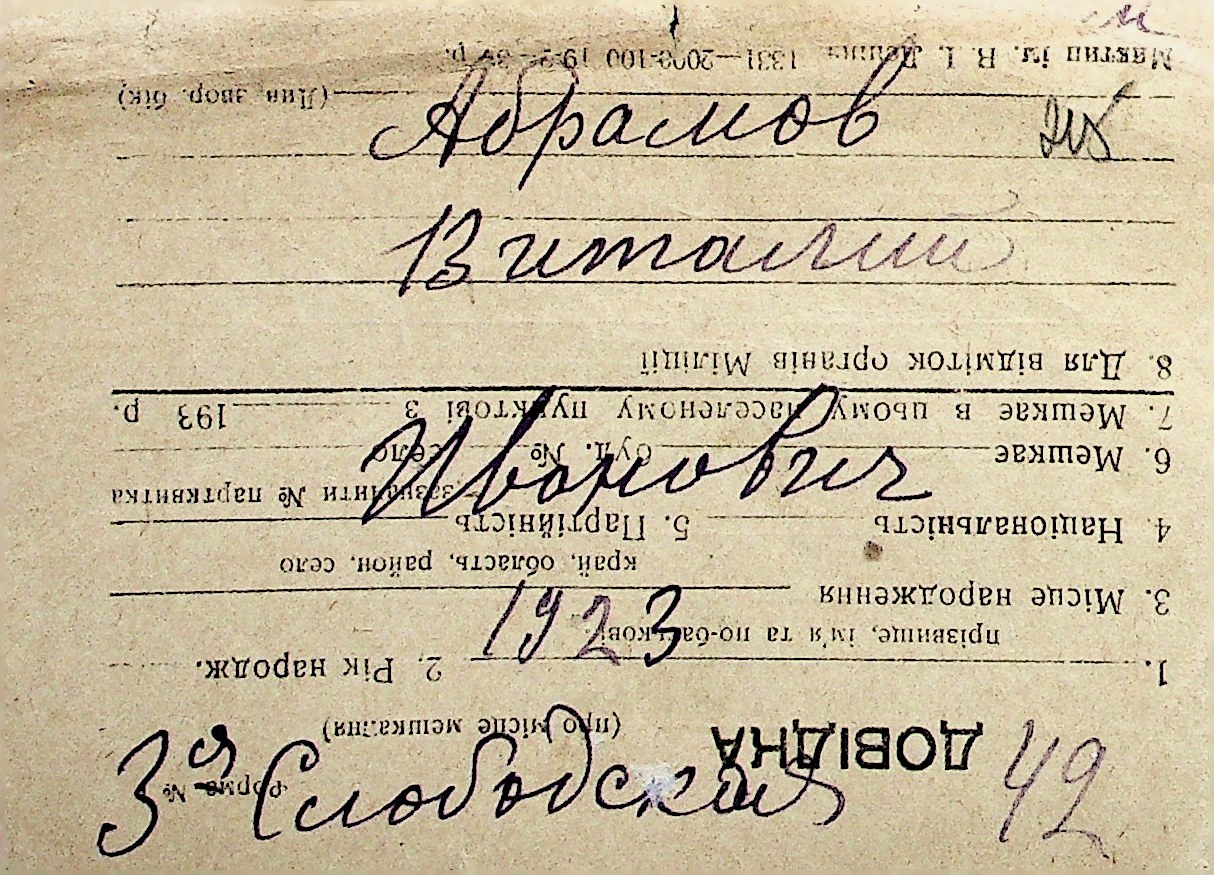 Абрамов
Виталий
Иванович
1923
3я Слободская 42
ДОВІДКА
(про місце мешкання)
Форма №
1. 2. Рік народж.
прізвище, ім'я та по-батькові
3. Місце народження
край, область, район, село
4. Національність 5. Партійність
зазначити № партквитка
6. Мешкає буд. № село
7. Мешкає в цьому населеному пунктові з 193 р.
8. Для відміток органів Міліції
(Див. звор. бік)